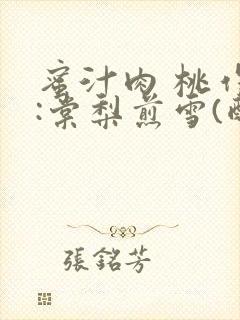 蜜汁肉桃作
:棠梨煎雪(酿
張銘芳